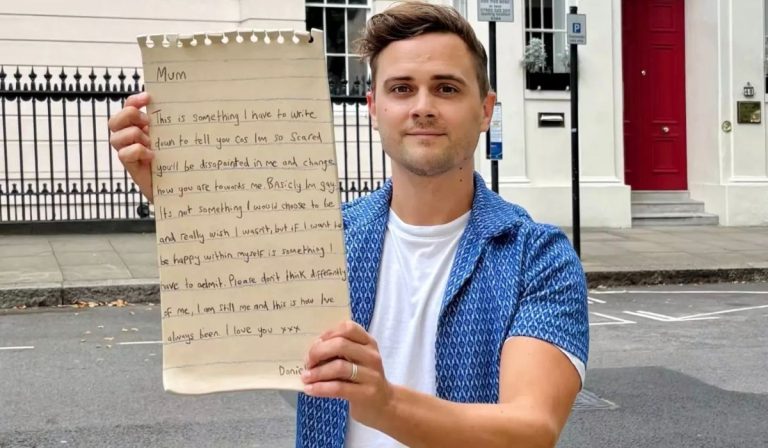 Mum
This is something I have to write
down to tell you cos Im so scared
you'll be disapointed in me and change
how you are towards me. Basicly Im gay.
Its not something I would choose to be
and really wish I wasn't, but if I want to
be happy within myself is something I
have to admit. Please don't think differently
of me, I am still me and this is how I've
always been. I love you xxx
Daniel
P